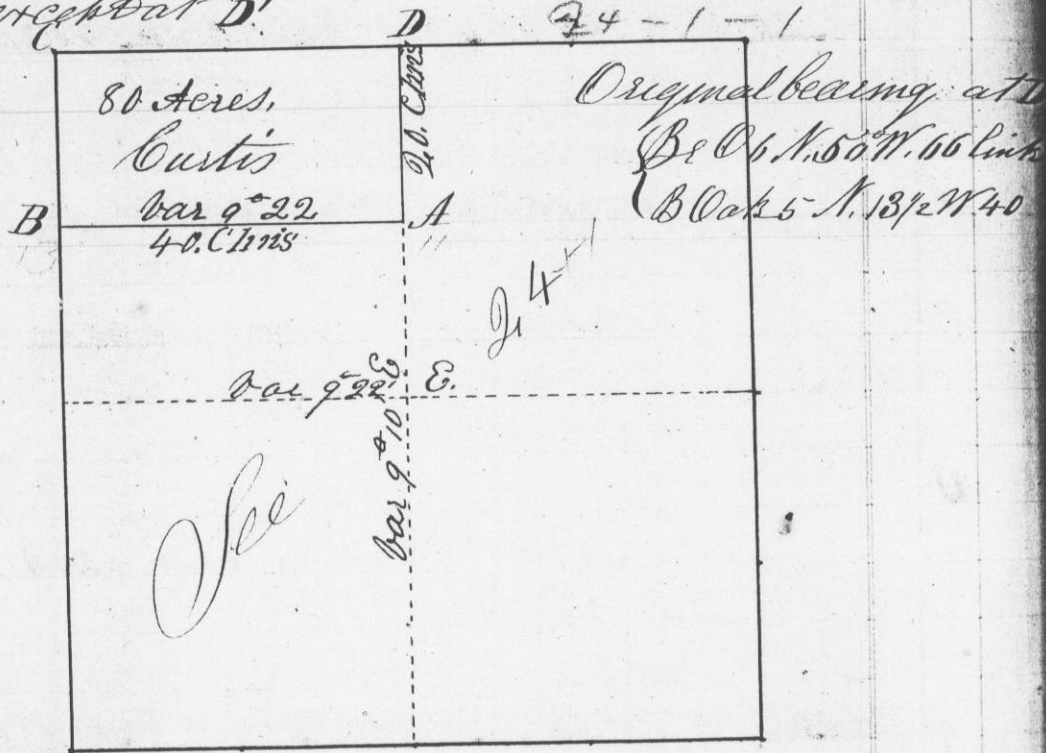 except at D.
C D 24 - 1 - 1
80 Acres,
Curtis
20. Chns
Original bearing at D
N. 50° W. 66 link
B Oak 5 N. 13½ W 40
B var 9° 22 A
40. Chns
24
var 9° 22' E E.
var 9° 10
Sec